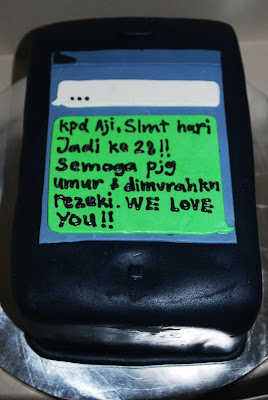 ...
Kpd Aji, Slmt hari
Jadi ke 28!!
Semoga pjg
umur & dimurahkn
rezeki. WE LOVE
YOU!!